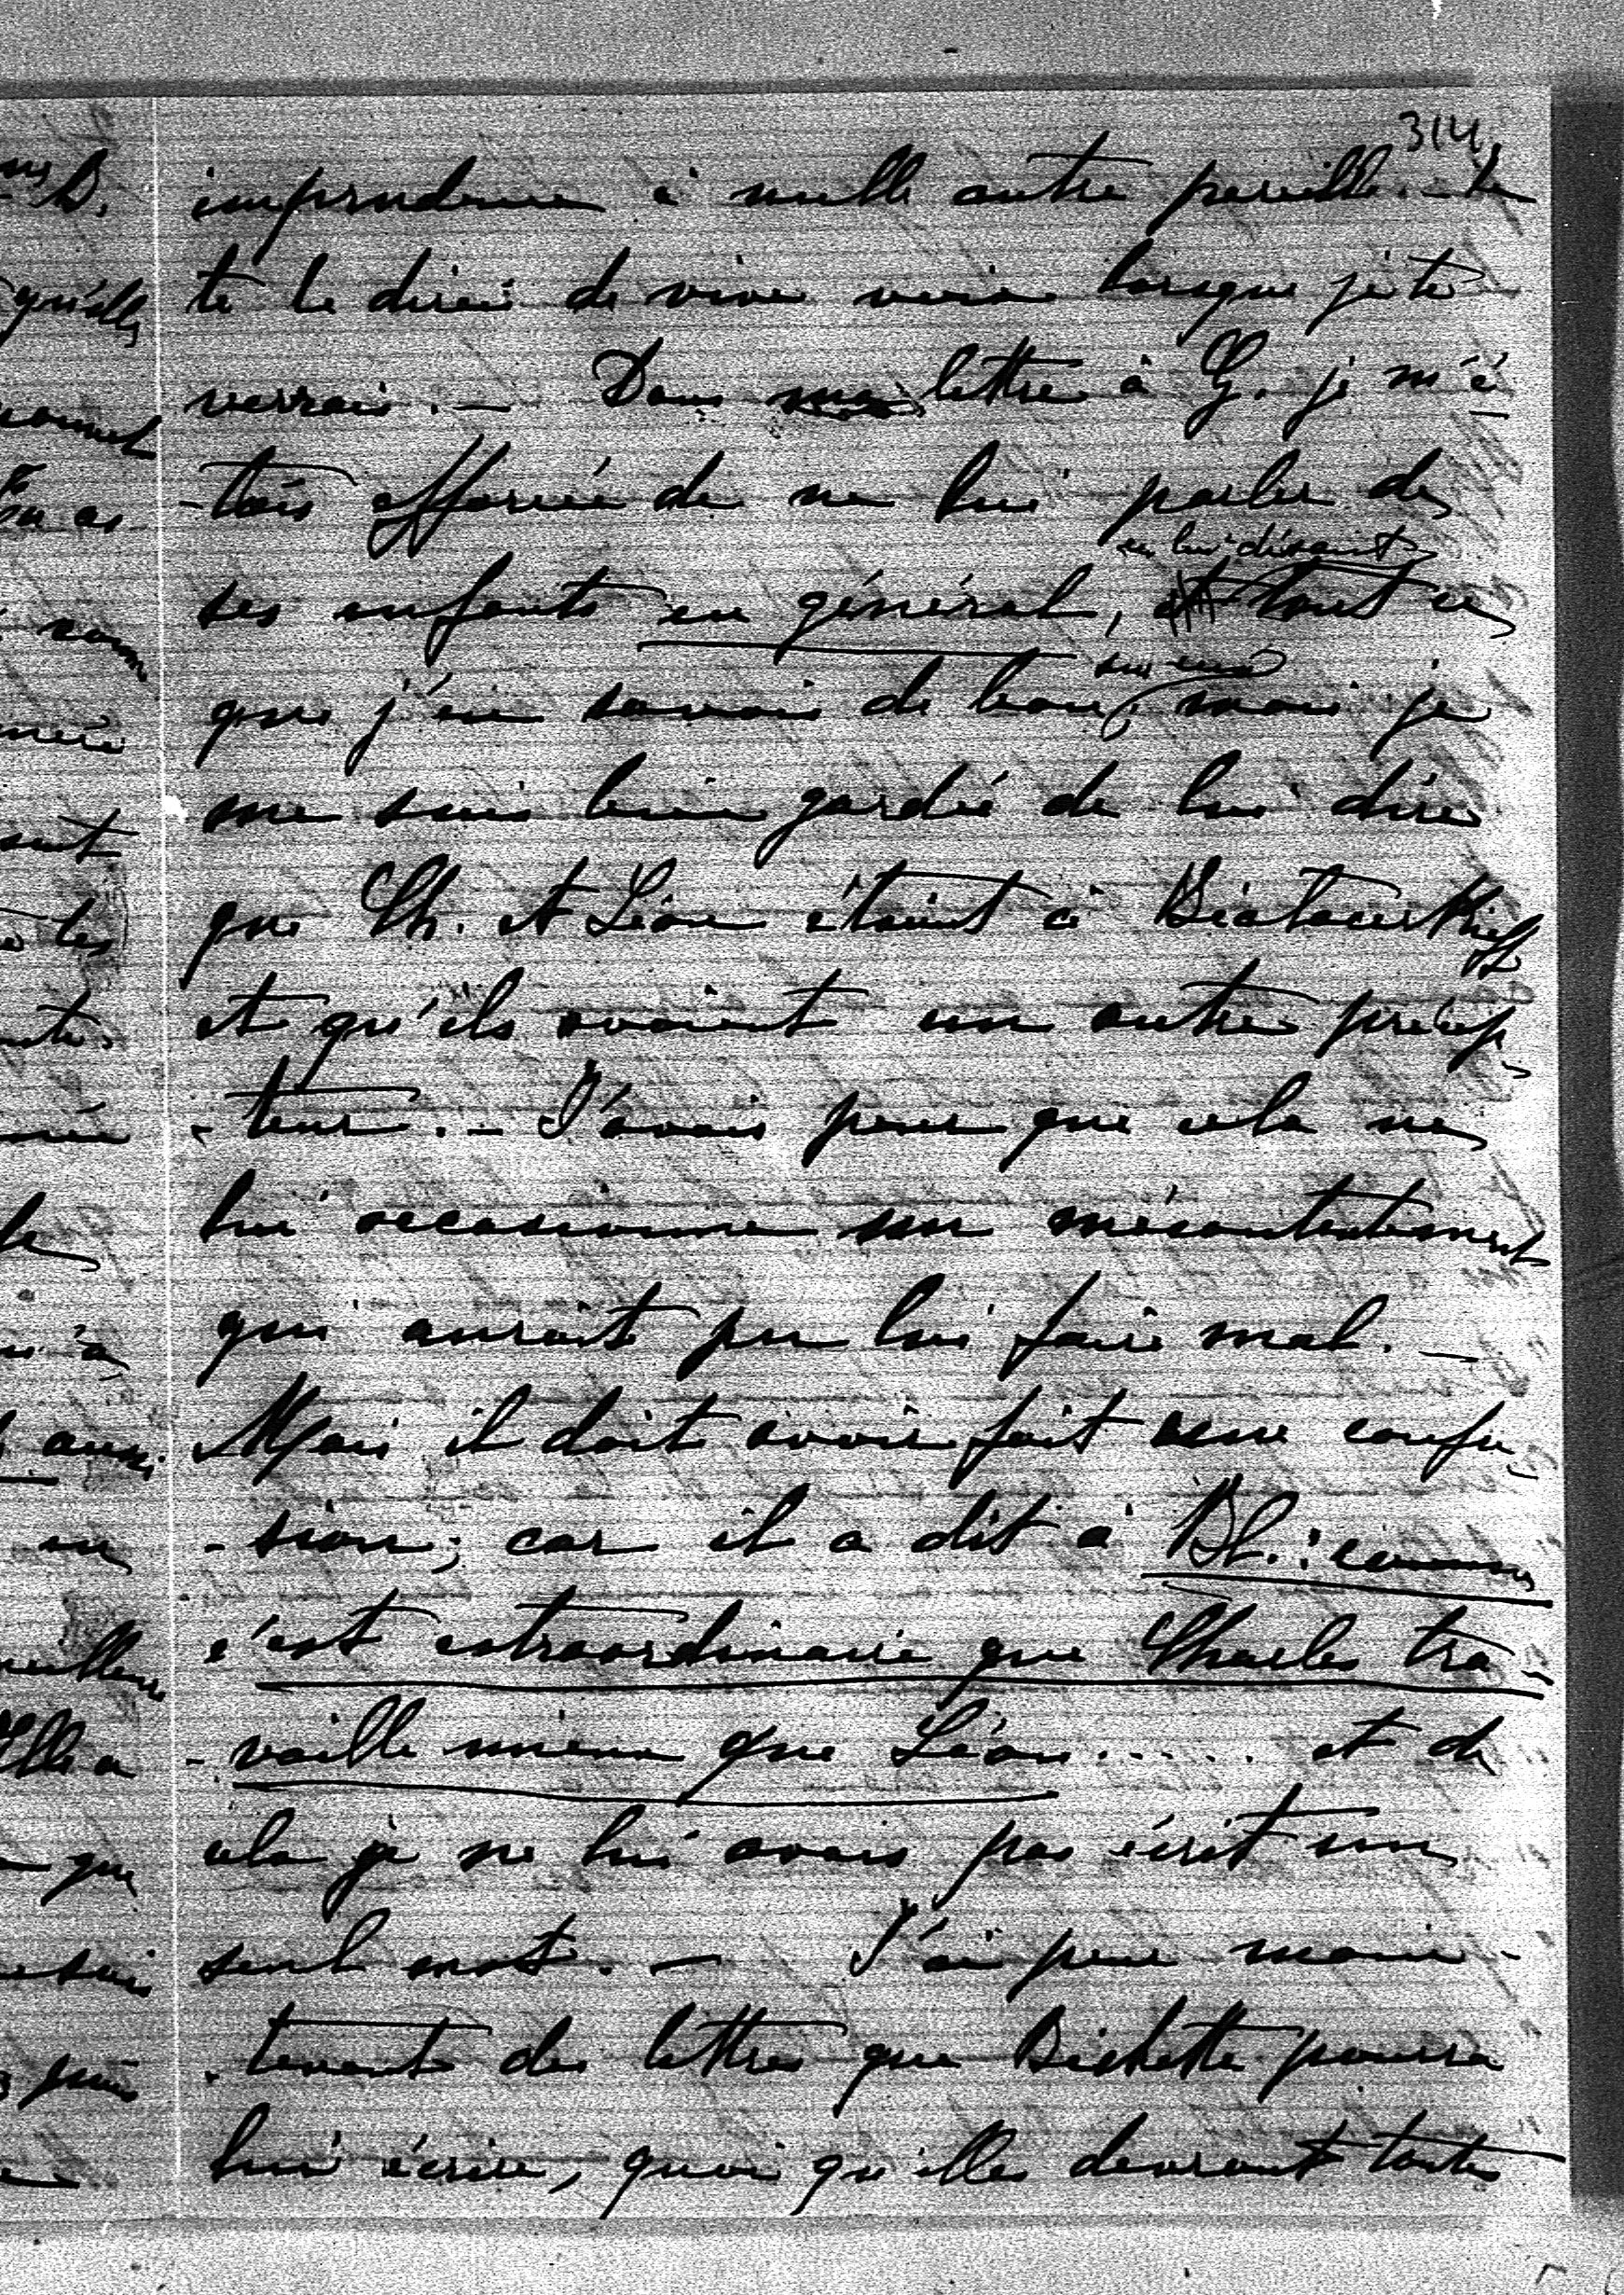 314
imprudence à nulle autre pareille. — Je
te le dirai de vive voix lorsque je te
verrai. — Dans ma lettre à G. je m'é-
-tais efforcée de ne lui parler de
ses enfants en général, en lui disant tout ce
que j'en savais de bon, sur eux mais je
me suis bien gardée de lui dire
que Ch. et Léon étaient à
et qu'ils avaient un autre précep-
-teur. — J'avais peur que cela ne
lui occasionne un mécontentement
qui aurait pu lui faire mal. —
Mais il doit avoir fait une confu-
-sion; car il a dit à Bl. : comme
c'est extraordinaire que Charles tra-
-vaille mieux que Léon...... et de
cela je ne lui avais pas écrit un
seul mot. — J'ai peur main-
-tenant des lettres que Bichette pourra
lui écrire, quoi qu'elles devront toutes